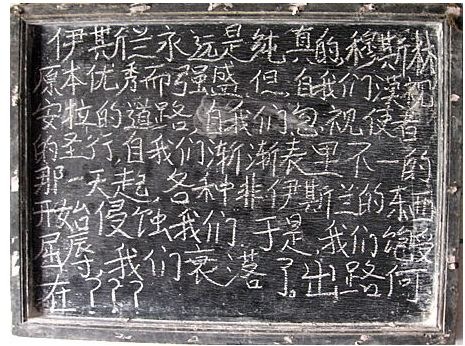 伊斯兰永远是纯真的,穆斯林
原本优秀而强盛,但,自我们漠视
安拉的道路,自我们忽视使者
的圣行,自我们渐渐表里不一的
那一天起,各种非伊斯兰的东西
开始侵蚀我们,于是,我们饱受
屈辱,我们衰落了,出路何
在???